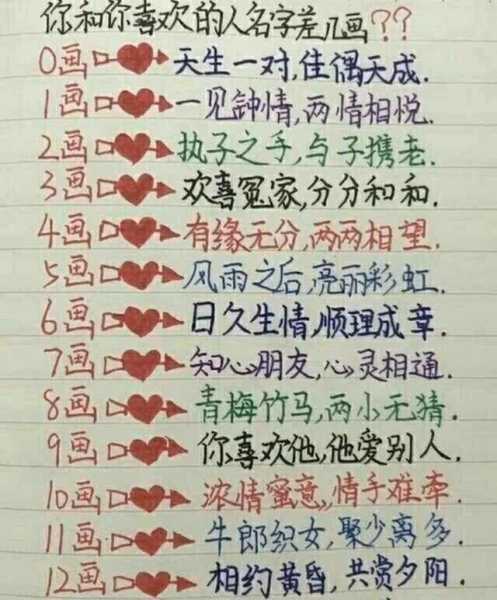 你和你喜欢的人名字差几画??
0画 天生一对,佳偶天成.
1画 一见钟情,两情相悦.
2画 执子之手,与子携老.
3画 欢喜冤家,分分和和.
4画 有缘无分,两两相望.
5画 风雨之后,亮丽彩虹.
6画 日久生情,顺理成章.
7画 知心朋友,心灵相通.
8画 青梅竹马,两小无猜.
9画 你喜欢他,他爱别人.
10画 浓情蜜意,情手难牵.
11画 牛郎织女,聚少离多.
12画 相约黄昏,共赏夕阳.